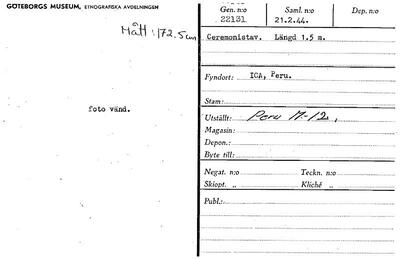 GÖTEBORGS MUSEUM, ETNOGRAFISKA AVDELNINGEN
Mått: 172.5 cm
foto vänd.
Gen. n:o
22131.
Saml. n:o
21.2.44.
Dep. n:o
Ceremonistav. Längd 1,5 m.
Fyndort: ICA, Peru.
Stam:
Utställt: Peru M-12,
Magasin:
Depon.:
Byte till:
Negat. n:o Teckn. n:o
Skiopt. „ Kliché „
Publ.: